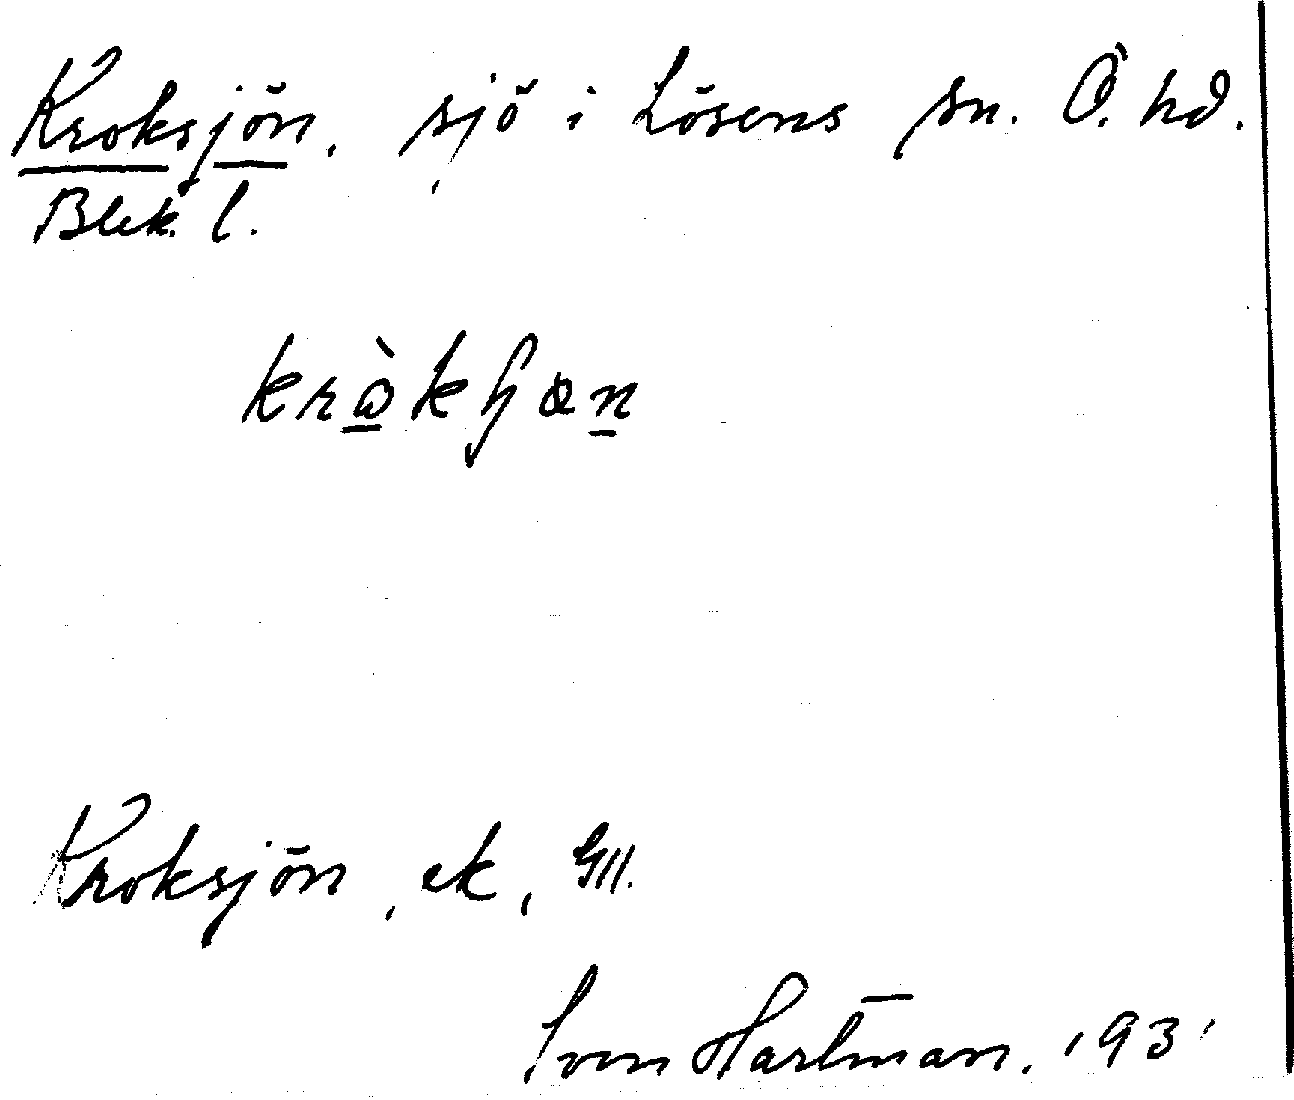 Kroksjön, sjö i Lösens sn. Ö. hd.
Blek. l.
Kroksjön, ek,
Sven Hartman. 1931